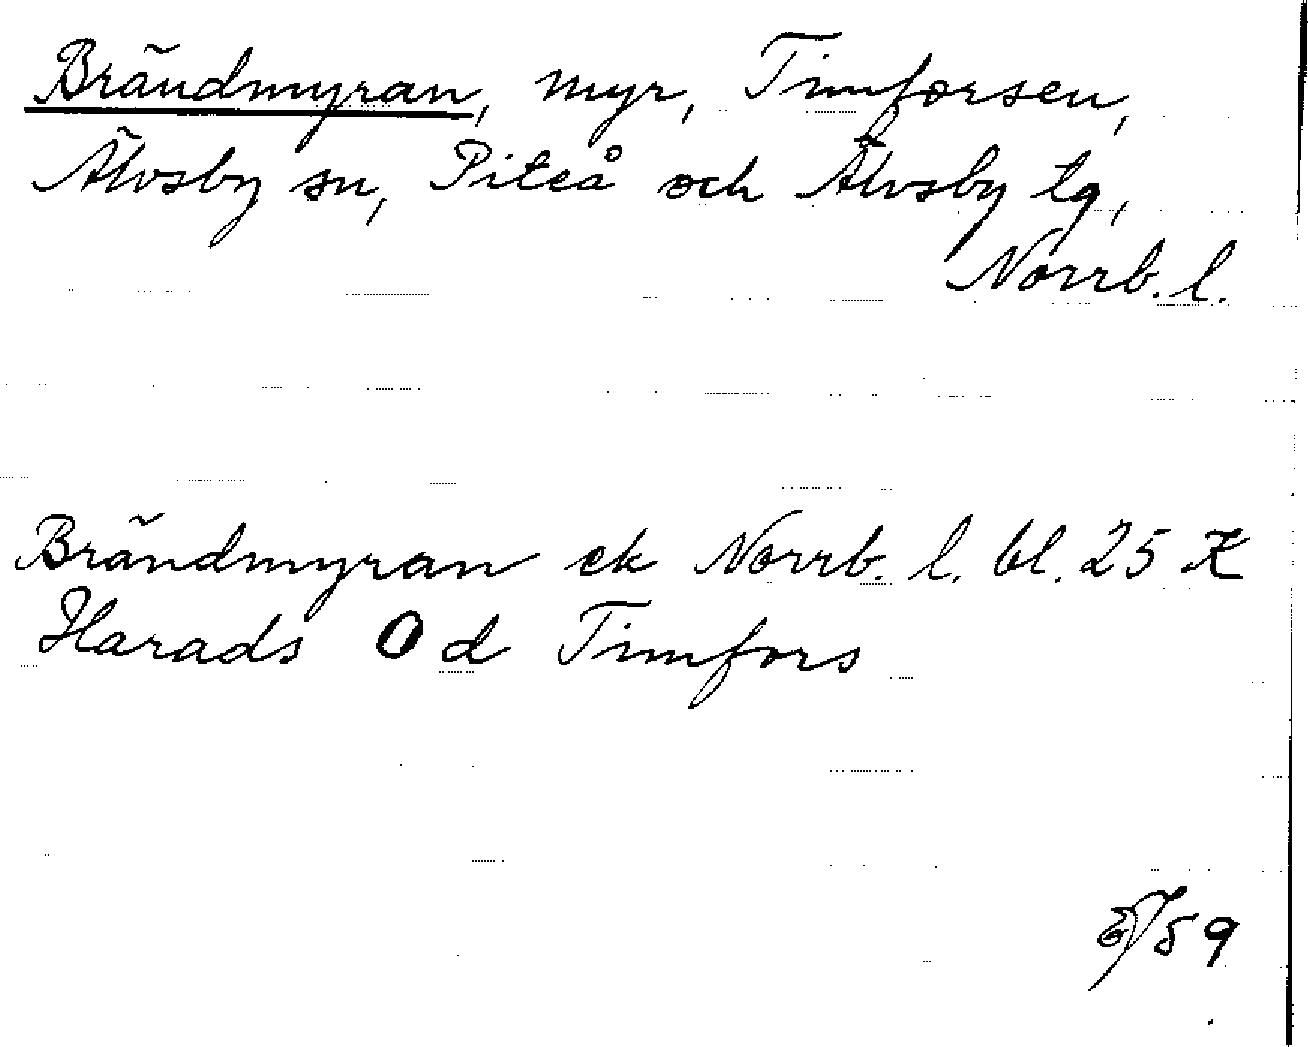 Brändmyran, myr, Timforsen,
Älvsby sn, Piteå och Älvsby tg,
Norrb. l.
Brändmyran ek Norrb. l. bl. 25 K
Harads 0 d Timfors
59